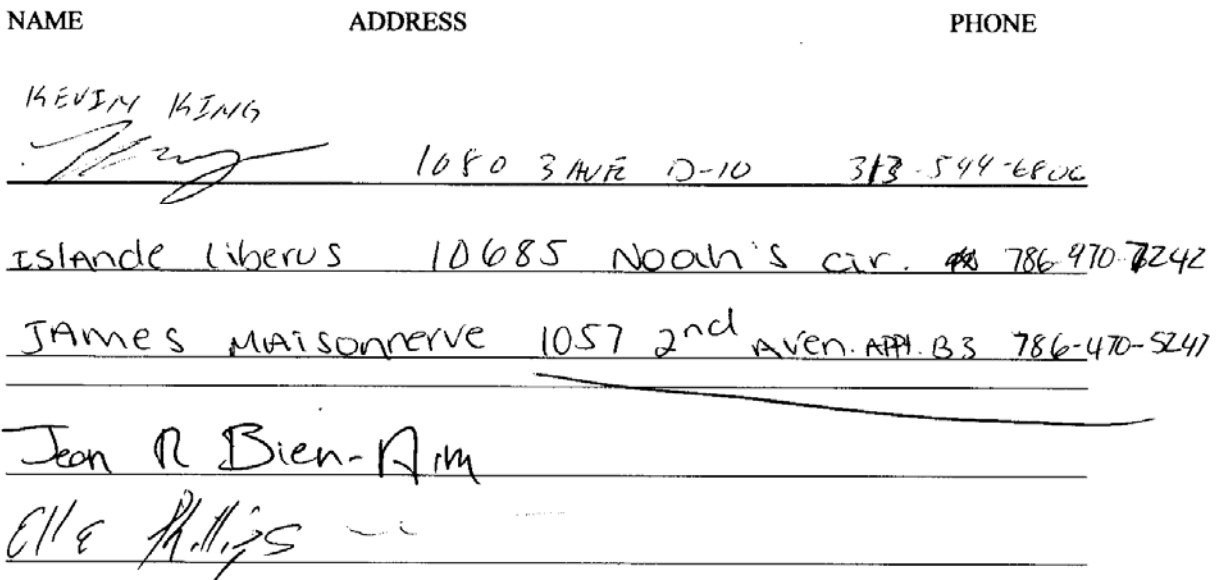 NAME ADDRESS PHONE
KEVIN KING
1080 3 AVE D-10 313-544-6806
ISLANDE LIBERUS 10685 NOAH'S CIR. 786-970-7242
JAMES MAISONNERVE 1057 2nd AVEN. APPT. B3 786-470-5247
Jean R Bien-Aim
Elle Phillips